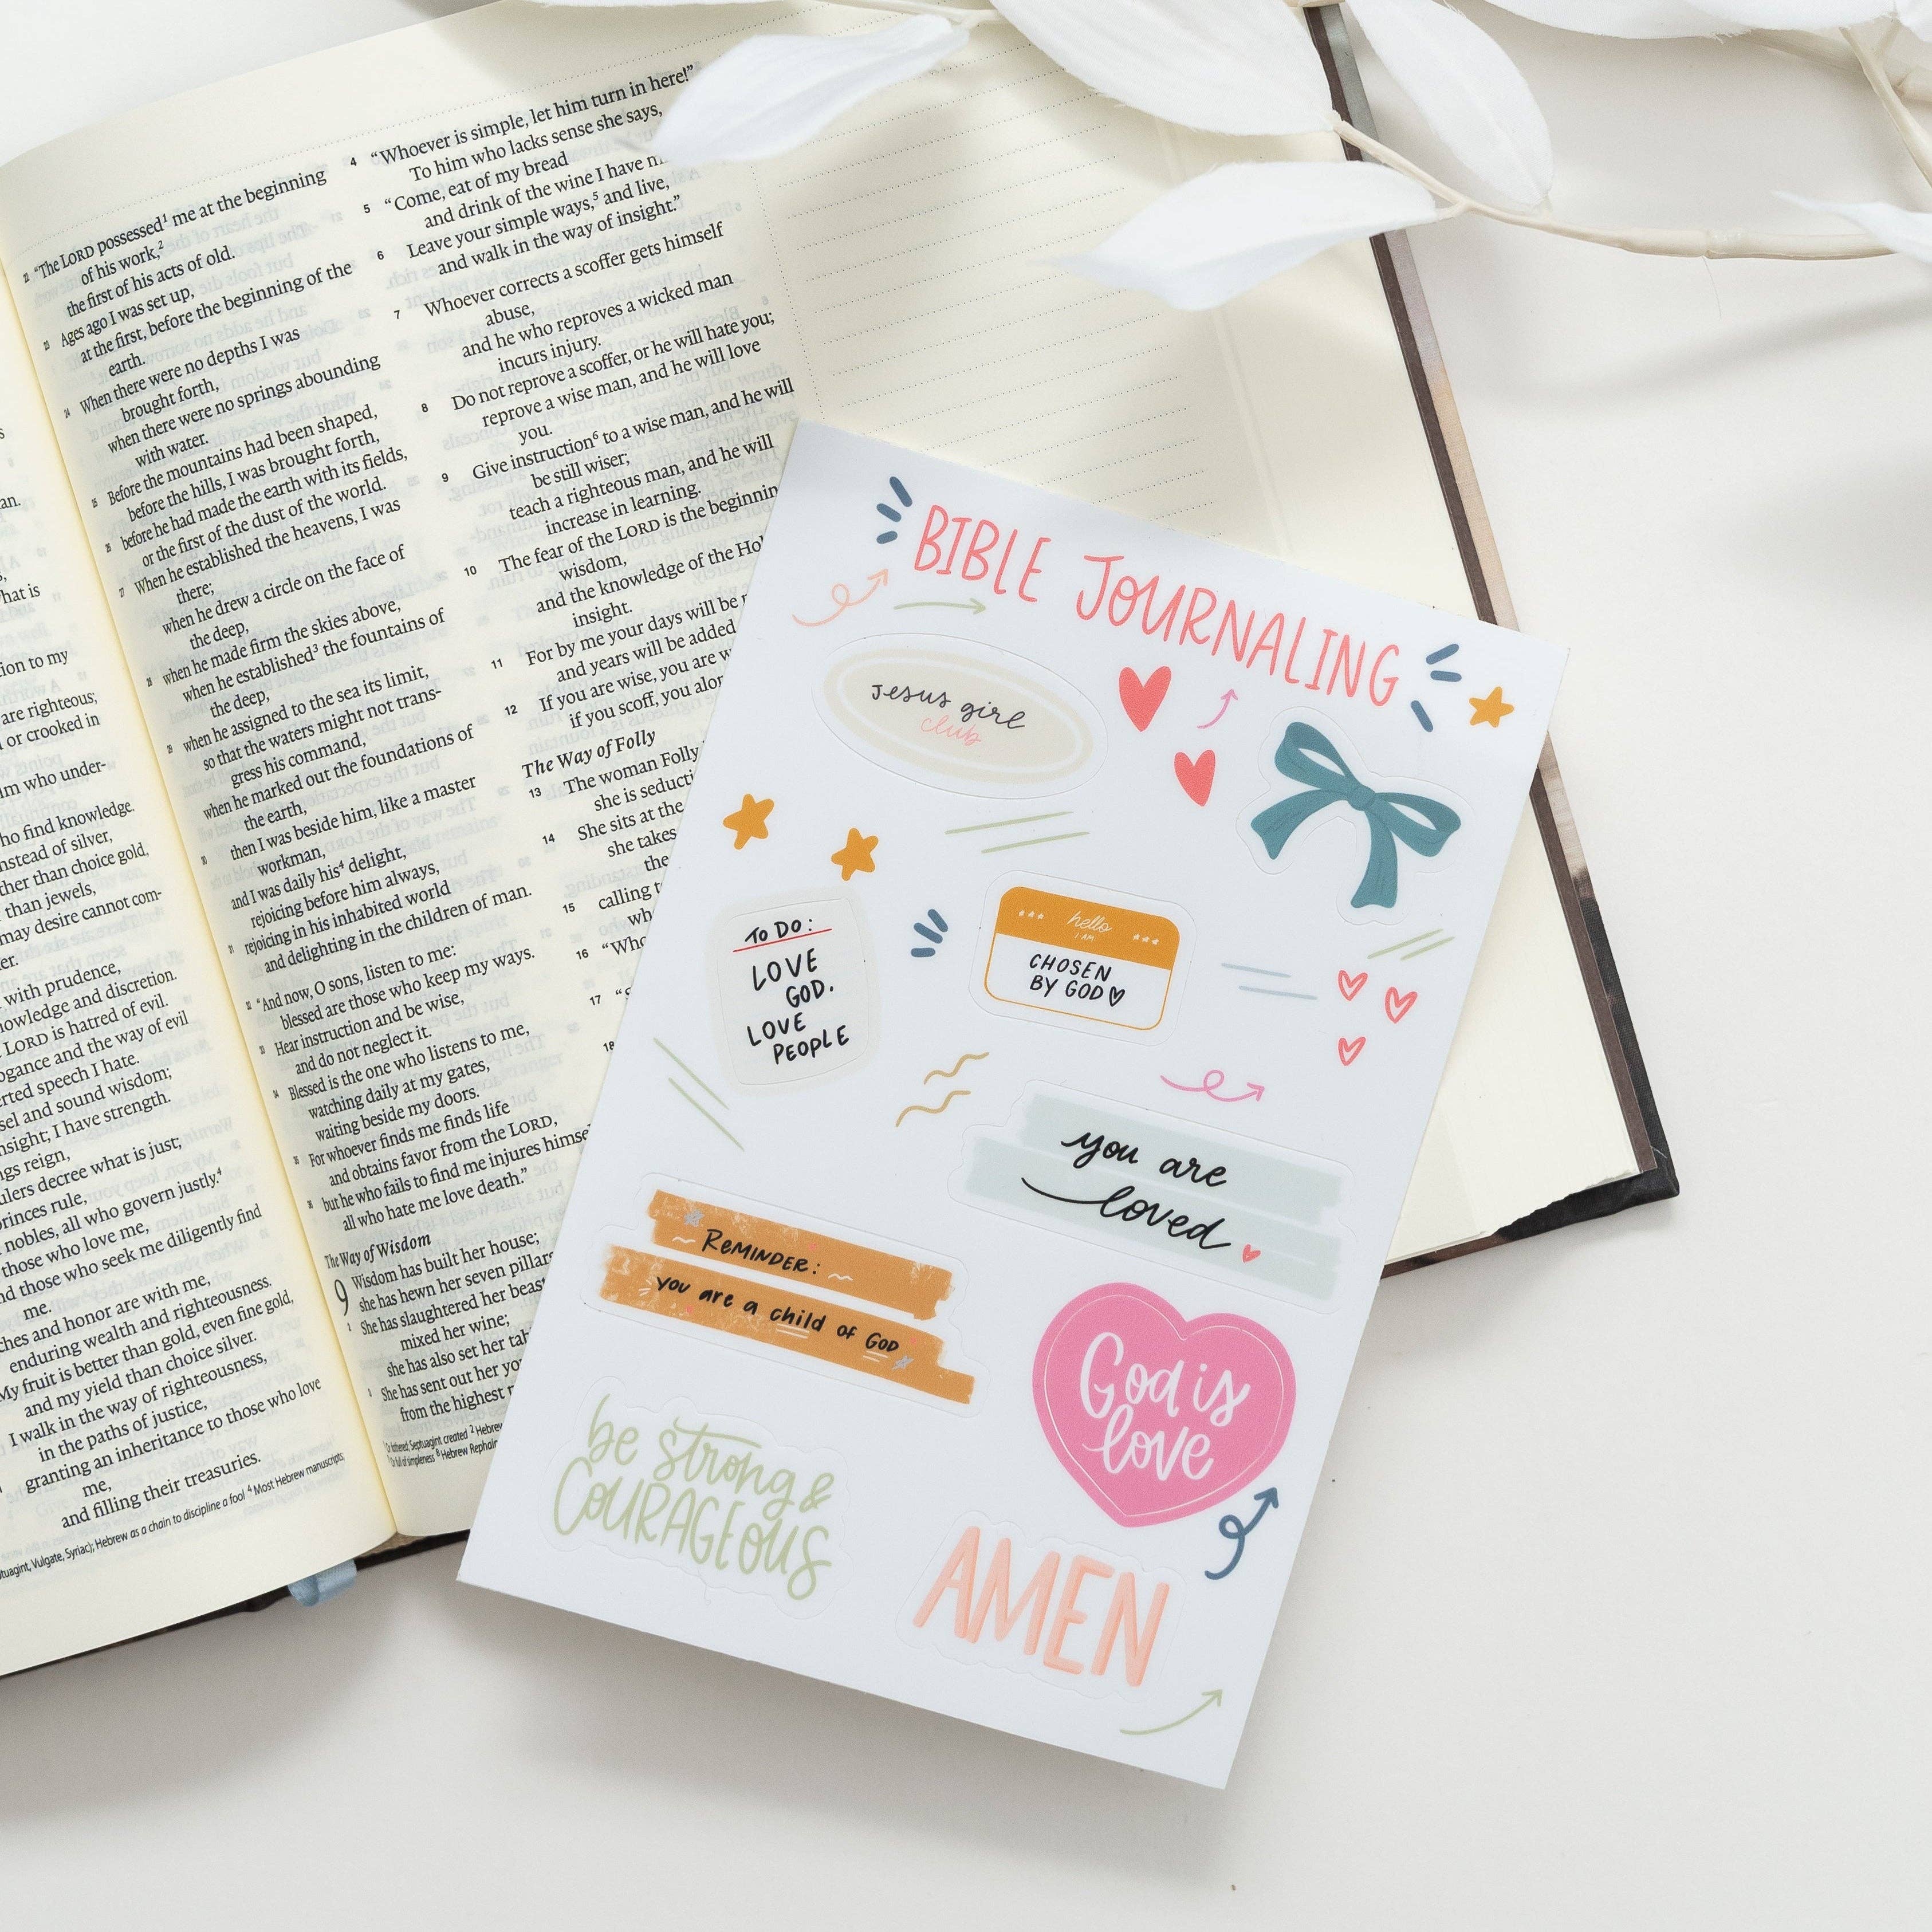 an.
hat is
ion to my
are righteous;
or crooked in
m who under-
ho find knowledge.
nstead of silver,
ther than choice gold,
than jewels,
may desire cannot com-
er.
with prudence,
nowledge and discretion.
LORD is hatred of evil.
ogance and the way of evil
erted speech I hate.
sel and sound wisdom;
nsight; I have strength.
ngs reign,
ulers decree what is just;
princes rule,
nobles, all who govern justly.⁴
those who love me,
nd those who seek me diligently find
me.
ches and honor are with me,
enduring wealth and righteousness.
My fruit is better than gold, even fine gold,
and my yield than choice silver.
I walk in the way of righteousness,
in the paths of justice,
granting an inheritance to those who love
me,
and filling their treasuries.
tuagint, Vulgate, Syriac); Hebrew as a chain to discipline a fool ⁴ Most Hebrew manuscripts
22 "The LORD possessed¹ me at the beginning
of his work,²
the first of his acts of old.
23 Ages ago I was set up,
at the first, before the beginning of the
earth.
24 When there were no depths I was
brought forth,
when there were no springs abounding
with water.
25 Before the mountains had been shaped,
before the hills, I was brought forth,
26 before he had made the earth with its fields,
or the first of the dust of the world.
27 When he established the heavens, I was
there;
when he drew a circle on the face of
the deep,
28 when he made firm the skies above,
when he established³ the fountains of
the deep,
29 when he assigned to the sea its limit,
so that the waters might not trans-
gress his command,
when he marked out the foundations of
the earth,
30 then I was beside him, like a master
workman,
and I was daily his⁴ delight,
rejoicing before him always,
31 rejoicing in his inhabited world
and delighting in the children of man.
32 "And now, O sons, listen to me:
blessed are those who keep my ways.
33 Hear instruction and be wise,
and do not neglect it.
34 Blessed is the one who listens to me,
watching daily at my gates,
waiting beside my doors.
35 For whoever finds me finds life
and obtains favor from the LORD,
36 but he who fails to find me injures himse
all who hate me love death."
The Way of Wisdom
9 Wisdom has built her house;
she has hewn her seven pillars
2 She has slaughtered her beast
mixed her wine;
she has also set her tab
3 She has sent out her yo
from the highest
4 "Whoever is simple, let him turn in here!"
To him who lacks sense she says,
5 "Come, eat of my bread
and drink of the wine I have
6 Leave your simple ways,⁵ and live,
and walk in the way of insight."
7 Whoever corrects a scoffer gets himself
abuse,
and he who reproves a wicked man
incurs injury.
8 Do not reprove a scoffer, or he will hate you;
reprove a wise man, and he will love
you.
9 Give instruction⁶ to a wise man, and he will
be still wiser;
teach a righteous man, and he will
increase in learning.
10 The fear of the LORD is the beginnin
wisdom,
and the knowledge of the Hol
insight.
11 For by me your days will be
and years will be added
12 If you are wise, you are w
if you scoff, you alon
The Way of Folly
13 The woman Folly
she is seducti
14 She sits at the
she takes
the
15 calling t
wh
16 "Who
17 "S
18
BIBLE JOURNALING
Jesus girl
club
TO DO:
LOVE
GOD.
LOVE
PEOPLE
hello
I AM
CHOSEN
BY GOD♡
you are
loved
REMINDER:
you are a child of GOD
God is
love
be strong &
COURAGEOUS
AMEN